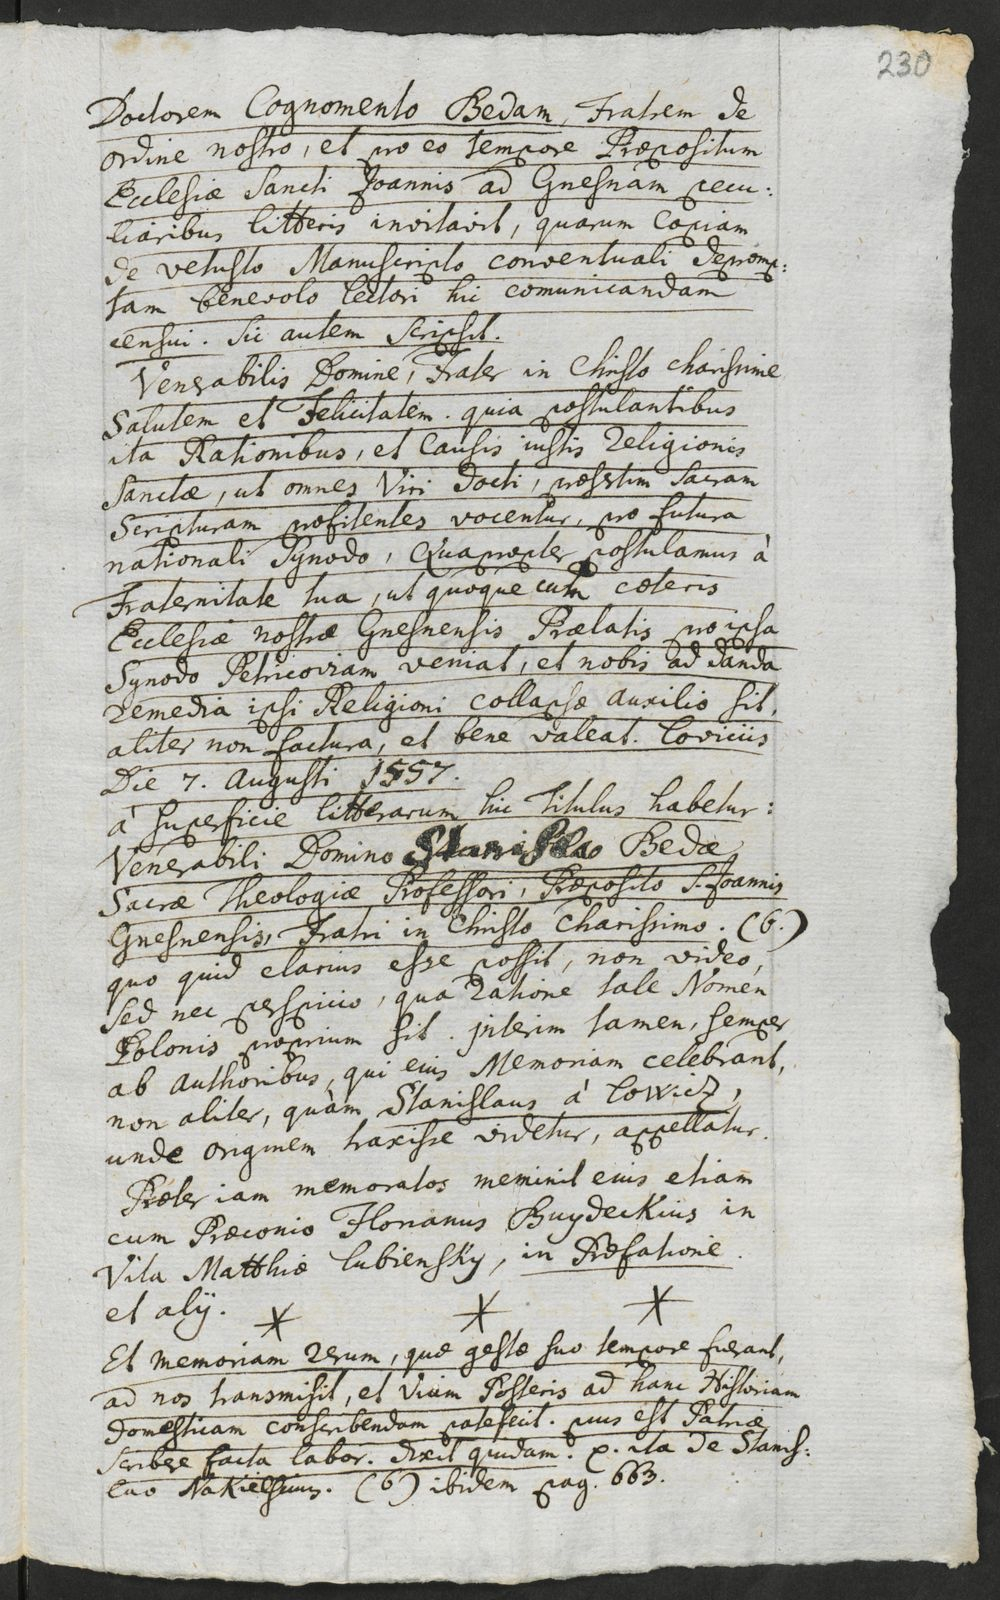 230
Doctorem Cognomento Bedam, Fratrem de
ordine nostro, et pro eo tempore Præpositum
Ecclesiæ Sancti Joannis ad Gnesnam pecu:
liaribus litteris invitavit, quarum Copiam
de vetusto Manuscripto conventuali depromp:
tam benevolo lectori hic comunicandam
censui. Sic autem scripsit.
Venerabilis Domine, Frater in Christo charissime
Salutem et Felicitatem. quia postulantibus
ita Rationibus, et Causis iustis Religionis
Sanctæ, ut omnes Viri docti, præsertim Sacram
Scripturam profitentes vocentur, pro futura
nationali Synodo, Quapropter postulamus à
Fraternitate tua, ut quoque cum cæteris
Ecclesiæ nostræ Gnesnensis Prælatis pro ipsa
Synodo Petricoviam veniat, et nobis ad danda
remedia ipsi Religioni collapsæ auxilio sit,
aliter non factura, et bene valeat. Loviciis
Die 7. Augusti 1557.
à superficie litterarum hic titulus habetur:
Venerabili Domino Stanislao Bedæ
Sacræ Theologiæ Professori, Præposito S. Joannis
Gnesnensis, Fratri in Christo charissimo. (6.)
quo quid clarius esse possit, non video,
sed nec perspicio, qua ratione tale Nomen
Polonis proprium sit. interim tamen, semper
ab authoribus, qui eius Memoriam celebrant,
non aliter, quàm Stanislaus à Lowicz,
unde originem traxisse videtur, appellatur.
Præter iam memoratos meminit eius etiam
cum Præconio Florianus Buydeckius in
Vita Matthiæ Lubiensky, in Præfatione.
et alij.
* * *
Et memoriam rerum, quæ gestæ suo tempore fuerant,
ad nos transmisit, et viam Posteris ad hanc Historiam
domesticam conscribendam patefecit. pius est Patriæ
scribere facta labor. dixit quidam. p. ita de Stanis:
lao Nakielsius. (6) ibidem pag. 663.